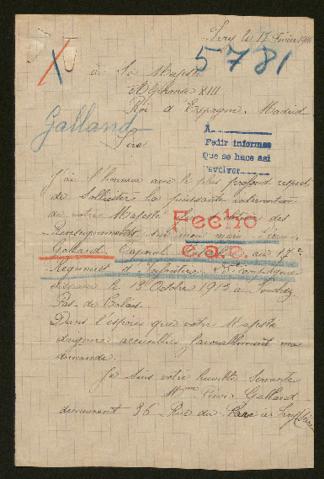 le 17 Février
5781
à Sa Majesté
Alphonse XIII
Roi d'Espagne. Madrid
Galland
Sire
A
Pedir informes
Que se hace asi
J'ai l'honneur avec le plus profond respect
de solliciter la puissante intervention
de votre Majesté des
Renseignements sur mon mari Pierre
Fecho
Galland Caporal au 17e
e.a.c.
Régiment d'Infanterie
disparu le 13 Octobre 1915 à
Pas de Calais.
Dans l'espoir que votre Majesté
daignera accueillir favorablement ma
demande.
Je suis votre humble Servante
Mme Pierre Galland
demeurant 36 Rue du à